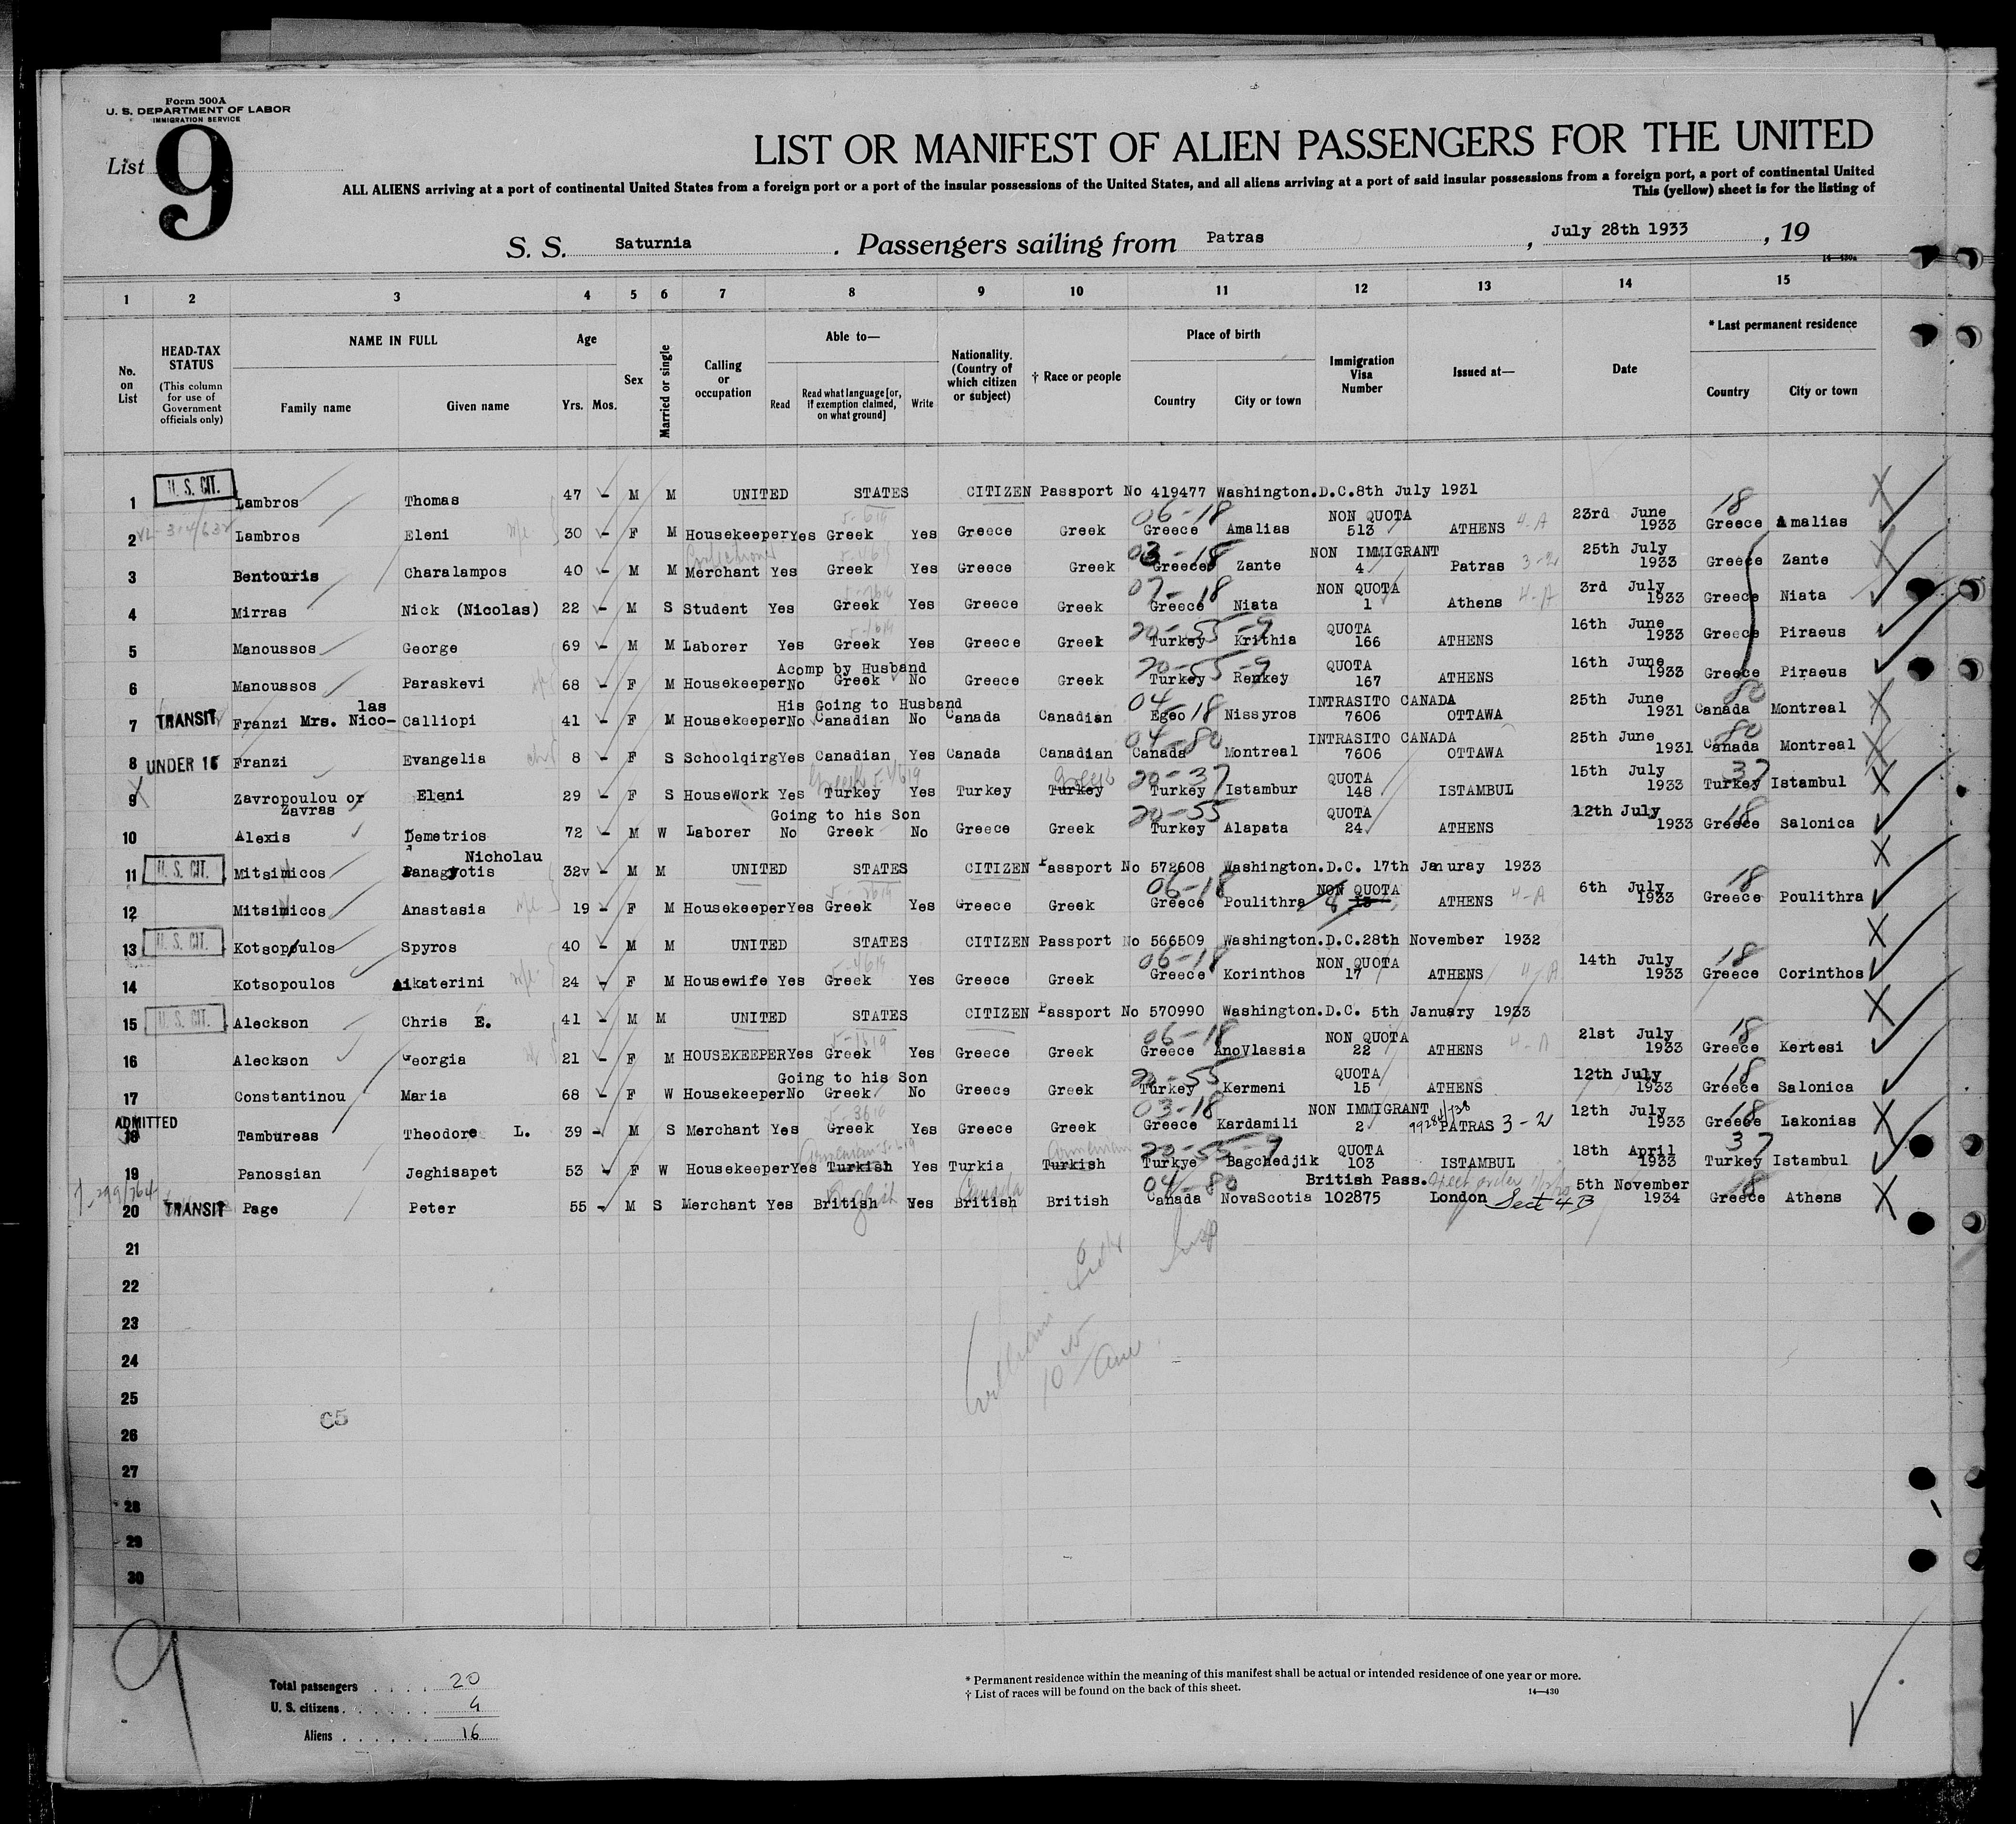 Form 500A
U. S. DEPARTMENT OF LABOR
IMMIGRATION SERVICE
List 9
LIST OR MANIFEST OF ALIEN PASSENGERS FOR THE UNITED
ALL ALIENS arriving at a port of continental United States from a foreign port or a port of the insular possessions of the United States, and all aliens arriving at a port of said insular possessions from a foreign port, a port of continental United
This (yellow) sheet is for the listing of
S. S. Saturnia . Passengers sailing from Patras , July 28th 1933 , 19
14—430a
1 2 3 4 5 6 7 8 9 10 11 12 13 14 15
No. on List
HEAD-TAX STATUS
(This column for use of Government officials only)
NAME IN FULL
Family name Given name
Age
Yrs. Mos.
Sex
Married or single
Calling or occupation
Able to—
Read Read what language [or, if exemption claimed, on what ground] Write
Nationality. (Country of which citizen or subject)
† Race or people
Place of birth
Country City or town
Immigration Visa Number
Issued at—
Date
* Last permanent residence
Country City or town
1 U. S. CIT. Lambros Thomas 47 - M M UNITED STATES CITIZEN Passport No 419477 Washington.D.C.8th July 1931
06-18 NON QUOTA 23rd June 18
2 Lambros Eleni 30 - F M Housekeeper Yes Greek Yes Greece Greek Greece Amalias 513 ATHENS 4-A 1933 Greece Amalias
03-18 NON IMMIGRANT 25th July
3 Bentouris Charalampos 40 - M M Merchant Yes Greek Yes Greece Greek Greece Zante 4 Patras 3-2 1933 Greece Zante
07-18 NON QUOTA 3rd July
4 Mirras Nick (Nicolas) 22 - M S Student Yes Greek Yes Greece Greek Greece Niata 1 Athens 4-A 1933 Greece Niata
20-55-9 QUOTA 16th June
5 Manoussos George 69 - M M Laborer Yes Greek Yes Greece Greek Turkey Krithia 166 ATHENS 1933 Greece Piraeus
Acomp by Husband 20-55-9 QUOTA 16th June
6 Manoussos Paraskevi 68 - F M Housekeeper No Greek No Greece Greek Turkey Renkey 167 ATHENS 1933 Greece Piraeus
las His Going to Husband 04-18 INTRASITO CANADA 25th June 80
7 TRANSIT Franzi Mrs. Nico- Calliopi 41 - F M Housekeeper No Canadian No Canada Canadian Egeo Nissyros 7606 OTTAWA 1931 Canada Montreal
04-80 INTRASITO CANADA 25th June 80
8 UNDER 16 Franzi Evangelia 8 - F S Schoolqirg Yes Canadian Yes Canada Canadian Canada Montreal 7606 OTTAWA 1931 Canada Montreal
Greek Greek 20-37 QUOTA 15th July 37
9 Zavropoulou or Eleni 29 - F S HouseWork Yes Turkey Yes Turkey Turkey Turkey Istambur 148 ISTAMBUL 1933 Turkey Istambul
Zavras
Going to his Son 20-55 QUOTA 12th July 18
10 Alexis Demetrios 72 - M W Laborer No Greek No Greece Greek Turkey Alapata 24 ATHENS 1933 Greece Salonica
Nicholau
11 U. S. CIT. Mitsimicos Panagyotis 32v - M M UNITED STATES CITIZEN Passport No 572608 Washington.D.C. 17th Januray 1933
06-18 NON QUOTA 6th July 18
12 Mitsimicos Anastasia 19 - F M Housekeeper Yes Greek Yes Greece Greek Greece Poulithra 8 15 ATHENS 4-A 1933 Greece Poulithra
13 U. S. CIT. Kotsopoulos Spyros 40 - M M UNITED STATES CITIZEN Passport No 566509 Washington.D.C.28th November 1932
06-18 NON QUOTA 14th July 18
14 Kotsopoulos Aikaterini 24 - F M Housewife Yes Greek Yes Greece Greek Greece Korinthos 17 ATHENS 4-A 1933 Greece Corinthos
15 U. S. CIT. Aleckson Chris E. 41 - M M UNITED STATES CITIZEN Passport No 570990 Washington.D.C. 5th January 1933
06-18 NON QUOTA 21st July 18
16 Aleckson Georgia 21 - F M HOUSEKEEPER Yes Greek Yes Greece Greek Greece AnoVlassia 22 ATHENS 4-A 1933 Greece Kertesi
Going to his Son 20-55 QUOTA 12th July 18
17 Constantinou Maria 68 - F W Housekeeper No Greek No Greece Greek Turkey Kermeni 15 ATHENS 1933 Greece Salonica
ADMITTED 03-18 NON IMMIGRANT 12th July 18
18 Tambureas Theodore L. 39 - M S Merchant Yes Greek Yes Greece Greek Greece Kardamili 2 PATRAS 3-2 1933 Greece Lakonias
Armenian Armenian 20-55-9 QUOTA 18th April 37
19 Panossian Jeghisapet 53 - F W Housekeeper Yes Turkish Yes Turkia Turkish Turkye Bagchedjik 103 ISTAMBUL 1933 Turkey Istambul
English Canada 04-80 British Pass. 5th November 18
20 TRANSIT Page Peter 55 - M S Merchant Yes British Yes British British Canada NovaScotia 102875 London Sect 4B 1934 Greece Athens
21
22
23
24
25
26
27
28
29
30
C5
9
Total passengers 20
U. S. citizens 4
Aliens 16
* Permanent residence within the meaning of this manifest shall be actual or intended residence of one year or more.
† List of races will be found on the back of this sheet.
14—430